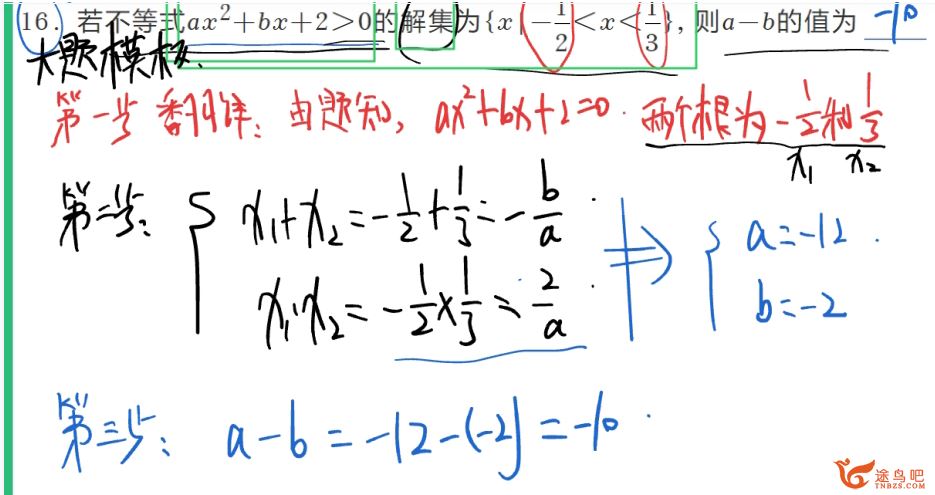 16. 若不等式ax²+bx+2>0的解集为{x|-1/2<x<1/3}, 则a-b的值为 -10
大题模板:
第一步 翻译: 由题知, ax²+bx+2=0. 两个根为-1/2和1/3
x₁ x₂
第二步: { x₁+x₂=-1/2+1/3=-b/a
x₁·x₂=-1/2×1/3=2/a
⇒ { a=-12.
b=-2
第三步: a-b=-12-(-2)=-10.
途鸟吧
TNBZS.COM